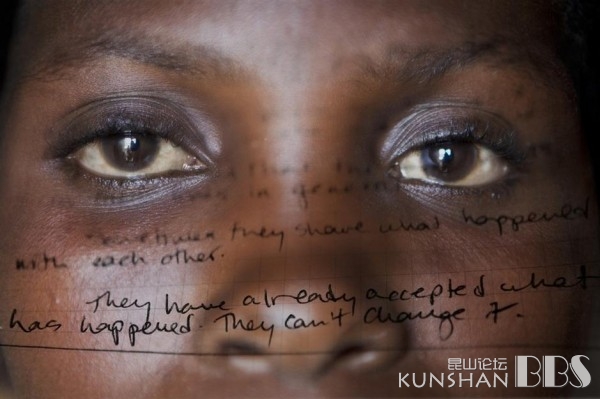 in general
Sometimes they share what happened
with each other.
They have already accepted what
has happened. They can't change it.
昆山论坛
KUNSHAN BBS